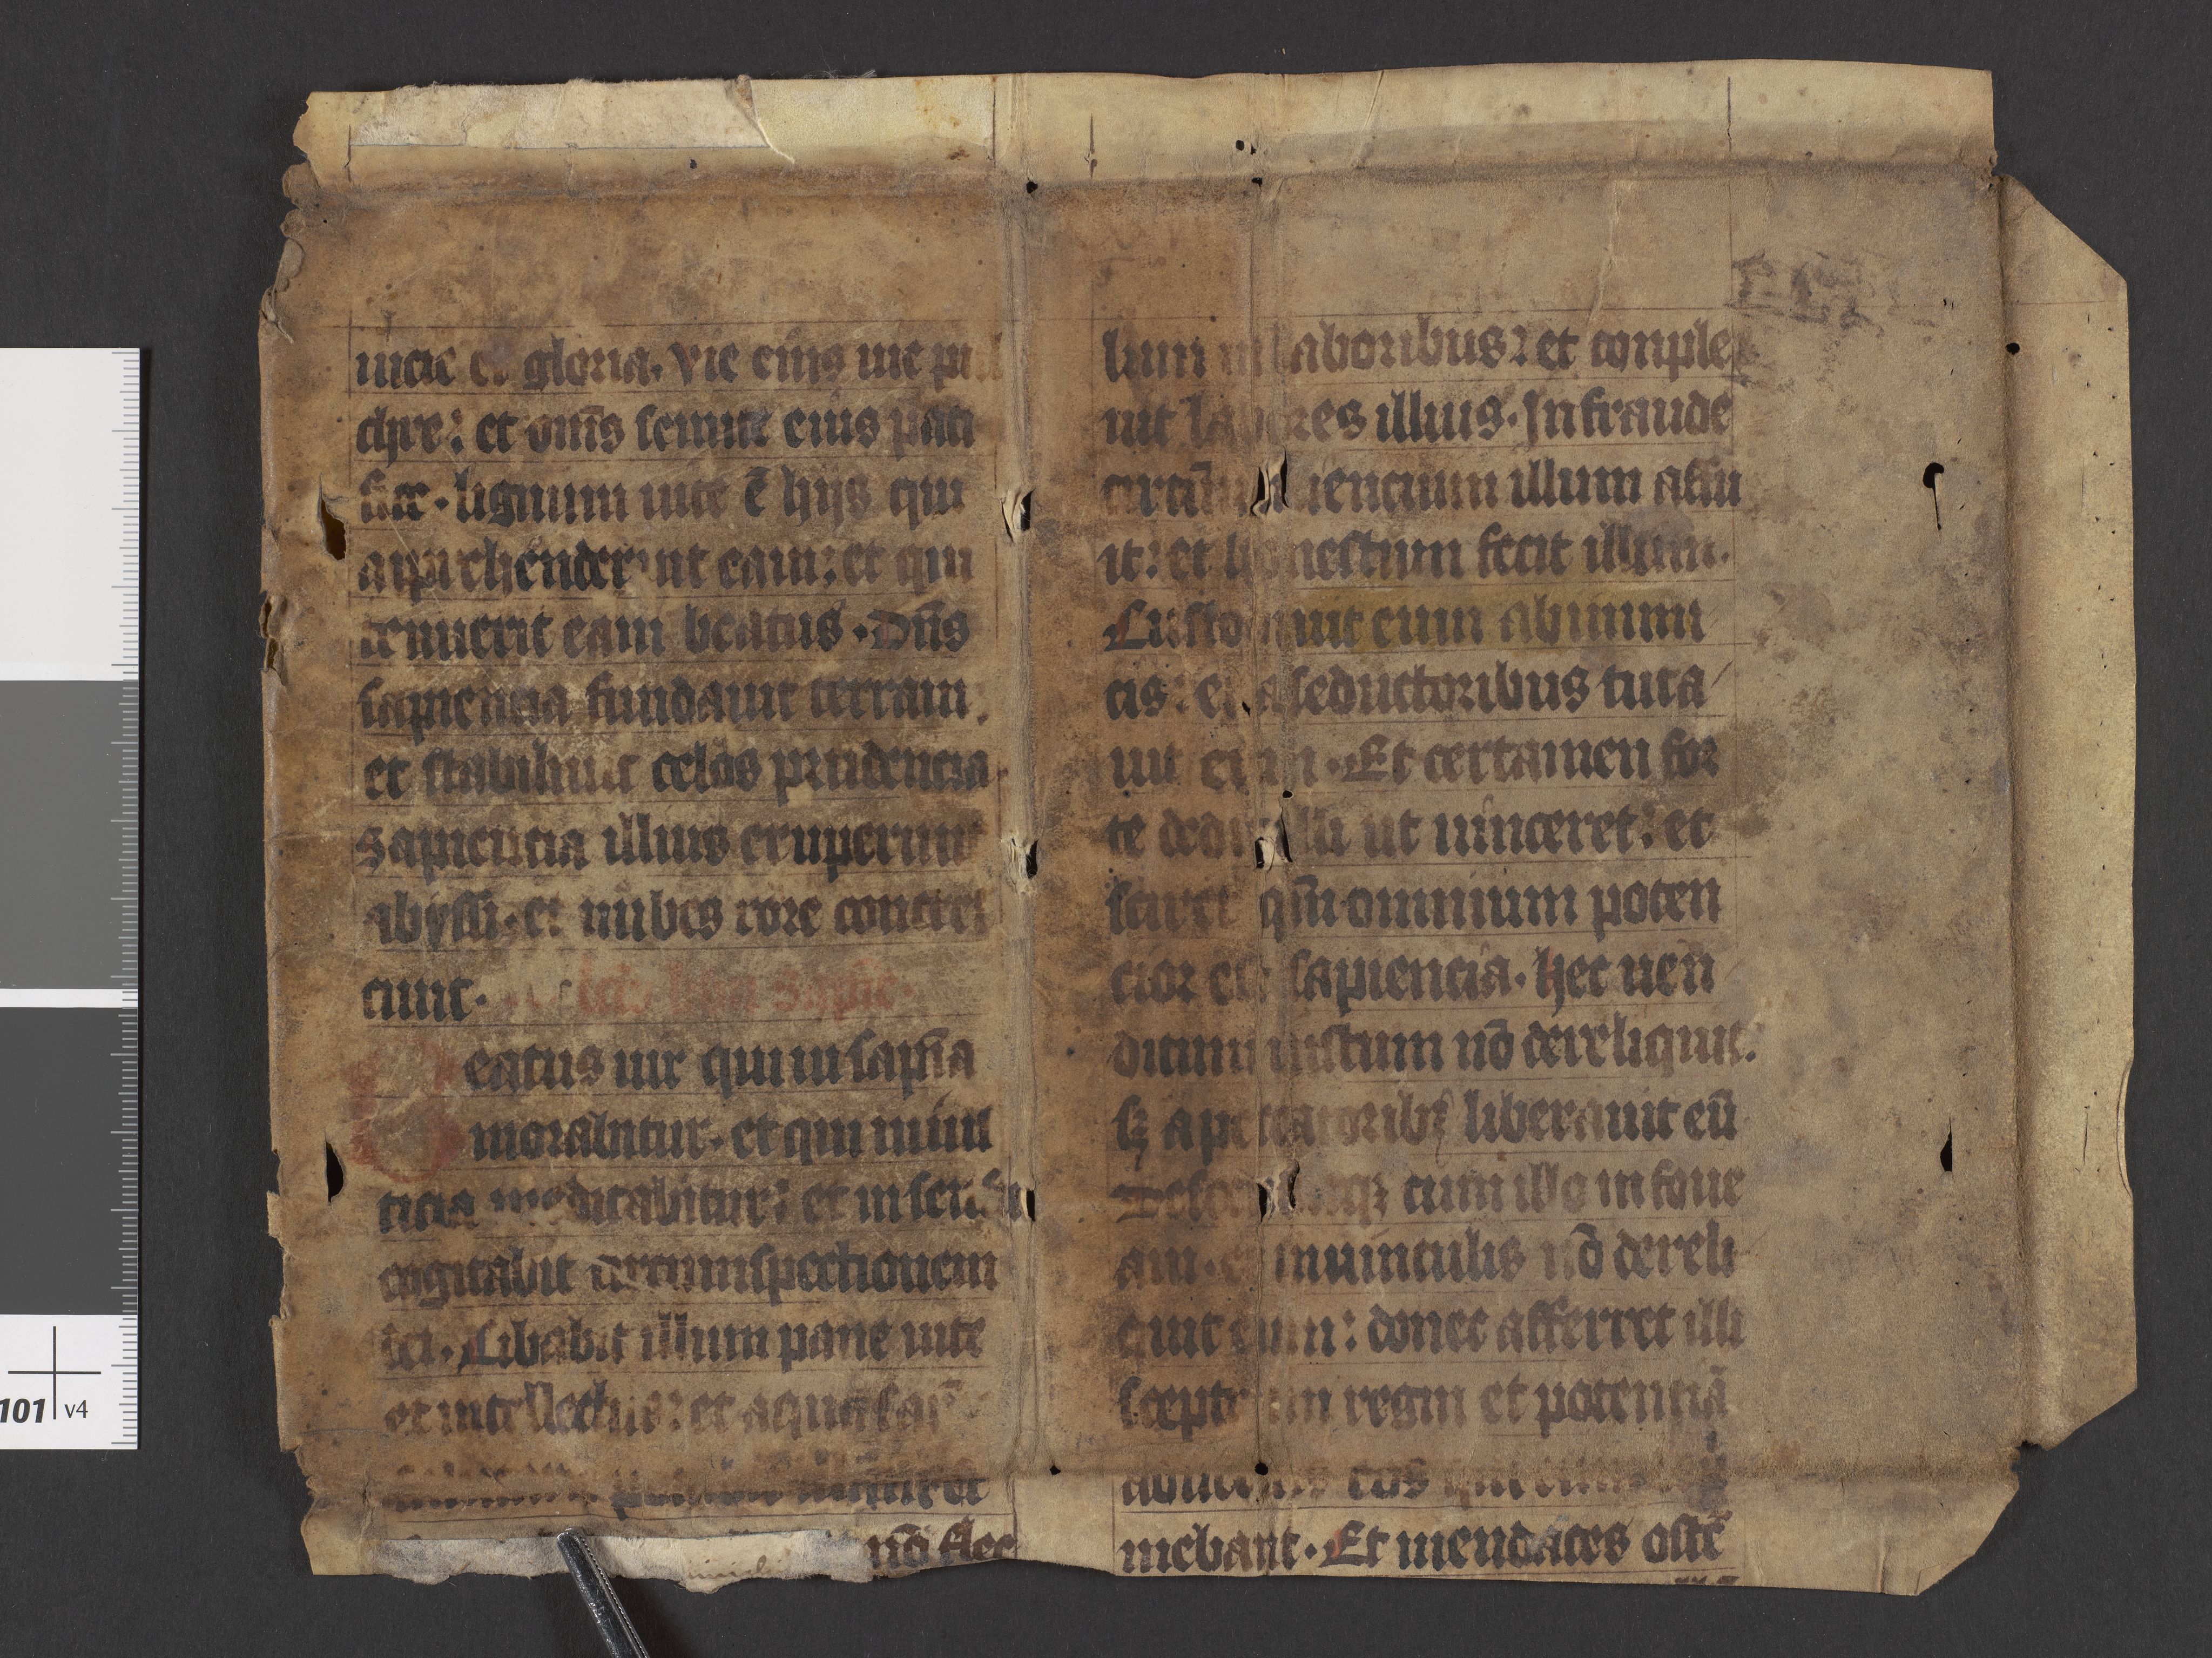 uicie et gloria. vie eius uie pul
chre: et om̄s semite eius paci
fice. lignum uite ē hijs qui
apprehenderint eam: et qui
tenuerit eam beatus. Dn̄s
sapiencia fundauit terram.
et stabiliuit celos prudencia
Sapiencia illius eruperunt
abyssi. et nubes rore concres
cunt. lc̄o libri Sapiē.
Beatus uir qui in sapīa
morabitur. et qui in iusti
ticia meditabitur: et in sensu
cogitabit circumspectionem
dei. Cibabit illum pane uite
et intellectus: et aqua sap
nō flec
lium in laboribus: et conple
uit labores illius. In fraude
circūueniencium illum affu
it: et honestum fecit illum.
Custodiuit eum ab inimi
cis: et a seductoribus tuta
uit eum. Et certamen for
te dedit illi ut uinceret: et
sciret qm̄ omnium poten
cior est sapiencia. hec uen̄
ditum iustum nō dereliquit.
sꝫ a peccatoribꝫ liberauit eū
Descenditqꝫ cum illo in foue
am. et in uinculis nō dereli
quit eum: donec afferret illi
sceptrum regni et potenciā
aduersus eos qui eum
mebant. Et mendaces ostē